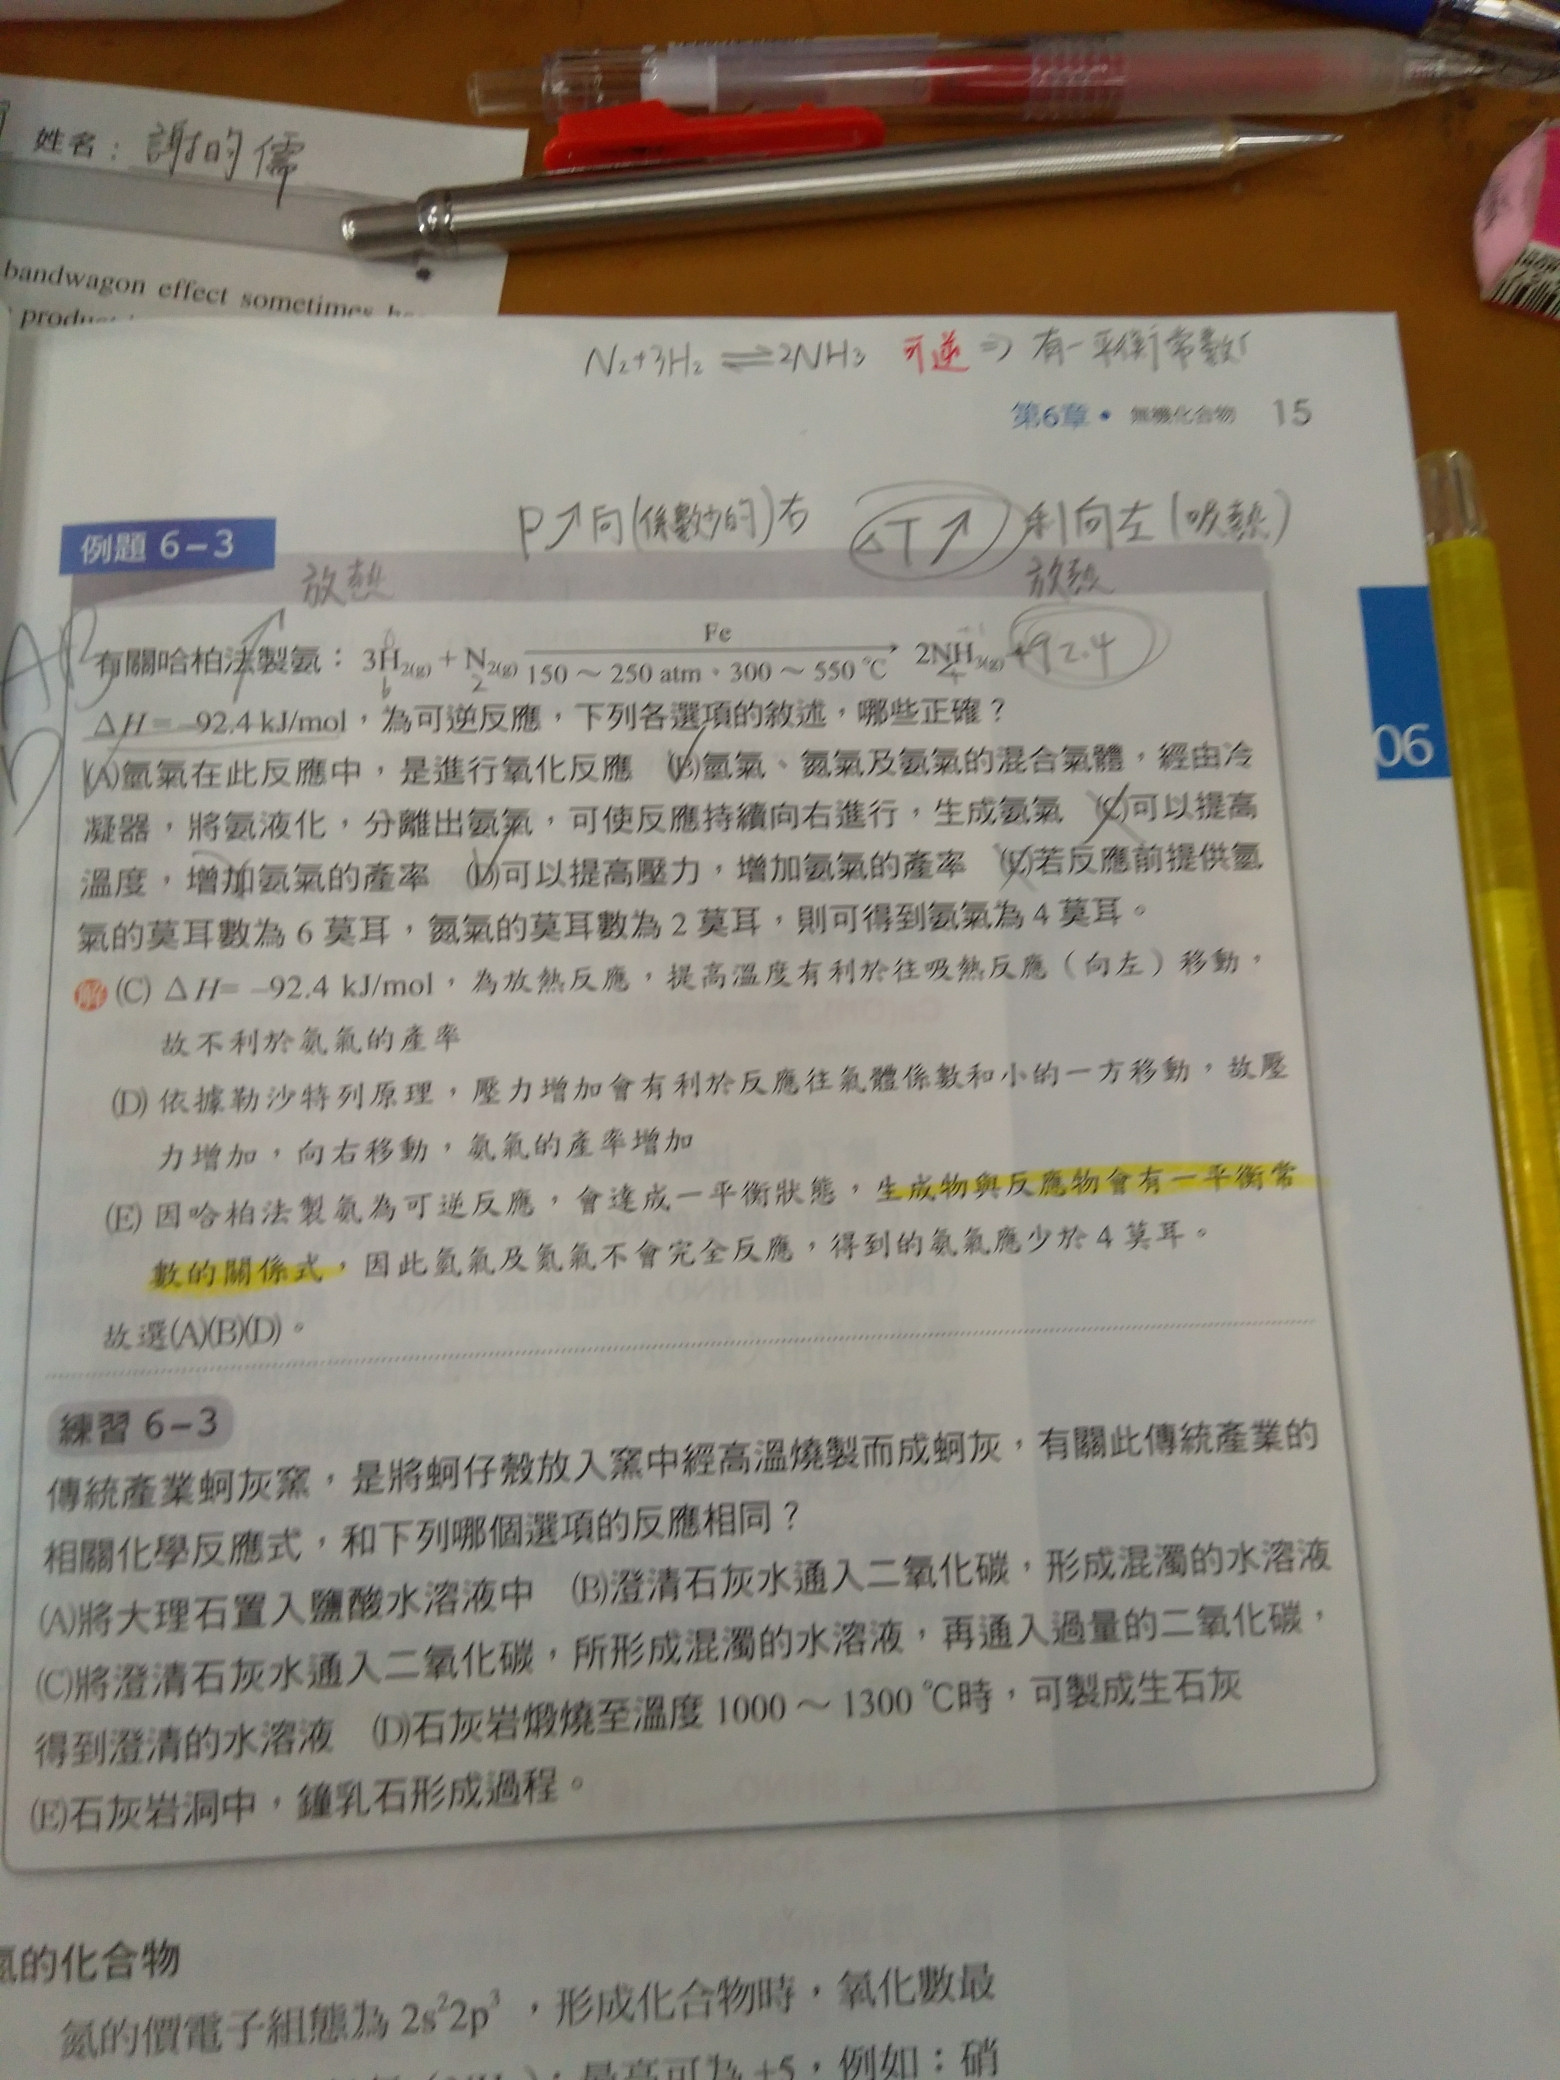 姓名：謝昀儒
bandwagon effect sometimes
N₂+3H₂ ⇌ 2NH₃ 可逆 ⇒ 有一平衡常數
第6章・無機化合物 15
P↗向(係數少的)右 △T↗ 利向左(吸熱)
例題 6-3
放熱 放熱
有關哈柏法製氨：3H₂(g) + N₂(g) Fe 150～250 atm、300～550 ℃ → 2NH₃(g) +92.4
ΔH = –92.4 kJ/mol，為可逆反應，下列各選項的敘述，哪些正確？
(A)氫氣在此反應中，是進行氧化反應 (B)氫氣、氮氣及氨氣的混合氣體，經由冷
凝器，將氨液化，分離出氨氣，可使反應持續向右進行，生成氨氣 (C)可以提高
溫度，增加氨氣的產率 (D)可以提高壓力，增加氨氣的產率 (E)若反應前提供氫
氣的莫耳數為 6 莫耳，氮氣的莫耳數為 2 莫耳，則可得到氨氣為 4 莫耳。
解 (C) ΔH= –92.4 kJ/mol，為放熱反應，提高溫度有利於往吸熱反應（向左）移動，
故不利於氨氣的產率
(D) 依據勒沙特列原理，壓力增加會有利於反應往氣體係數和小的一方移動，故壓
力增加，向右移動，氨氣的產率增加
(E) 因哈柏法製氨為可逆反應，會達成一平衡狀態，生成物與反應物會有一平衡常
數的關係式，因此氫氣及氮氣不會完全反應，得到的氨氣應少於 4 莫耳。
故選(A)(B)(D)。
06
練習 6-3
傳統產業蚵灰窯，是將蚵仔殼放入窯中經高溫燒製而成蚵灰，有關此傳統產業的
相關化學反應式，和下列哪個選項的反應相同？
(A)將大理石置入鹽酸水溶液中 (B)澄清石灰水通入二氧化碳，形成混濁的水溶液
(C)將澄清石灰水通入二氧化碳，所形成混濁的水溶液，再通入過量的二氧化碳，
得到澄清的水溶液 (D)石灰岩煅燒至溫度 1000～1300 ℃時，可製成生石灰
(E)石灰岩洞中，鐘乳石形成過程。
氮的化合物
氮的價電子組態為 2s²2p³，形成化合物時，氧化數最
最高可為 +5，例如：硝